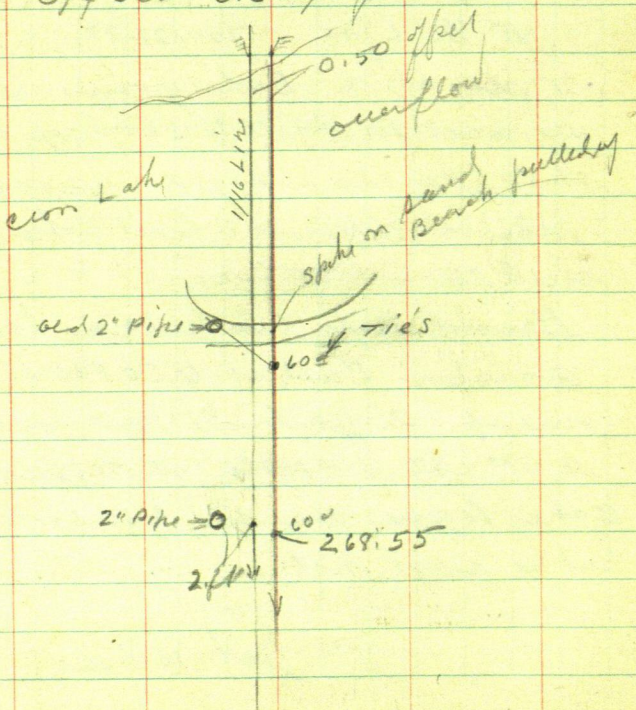 0.50 offset
overflow
1/16 Line
Lake
spike on sand
Beach pulled up
old 2" Pipe
Ties
60d
2" Pipe
60d
268.55